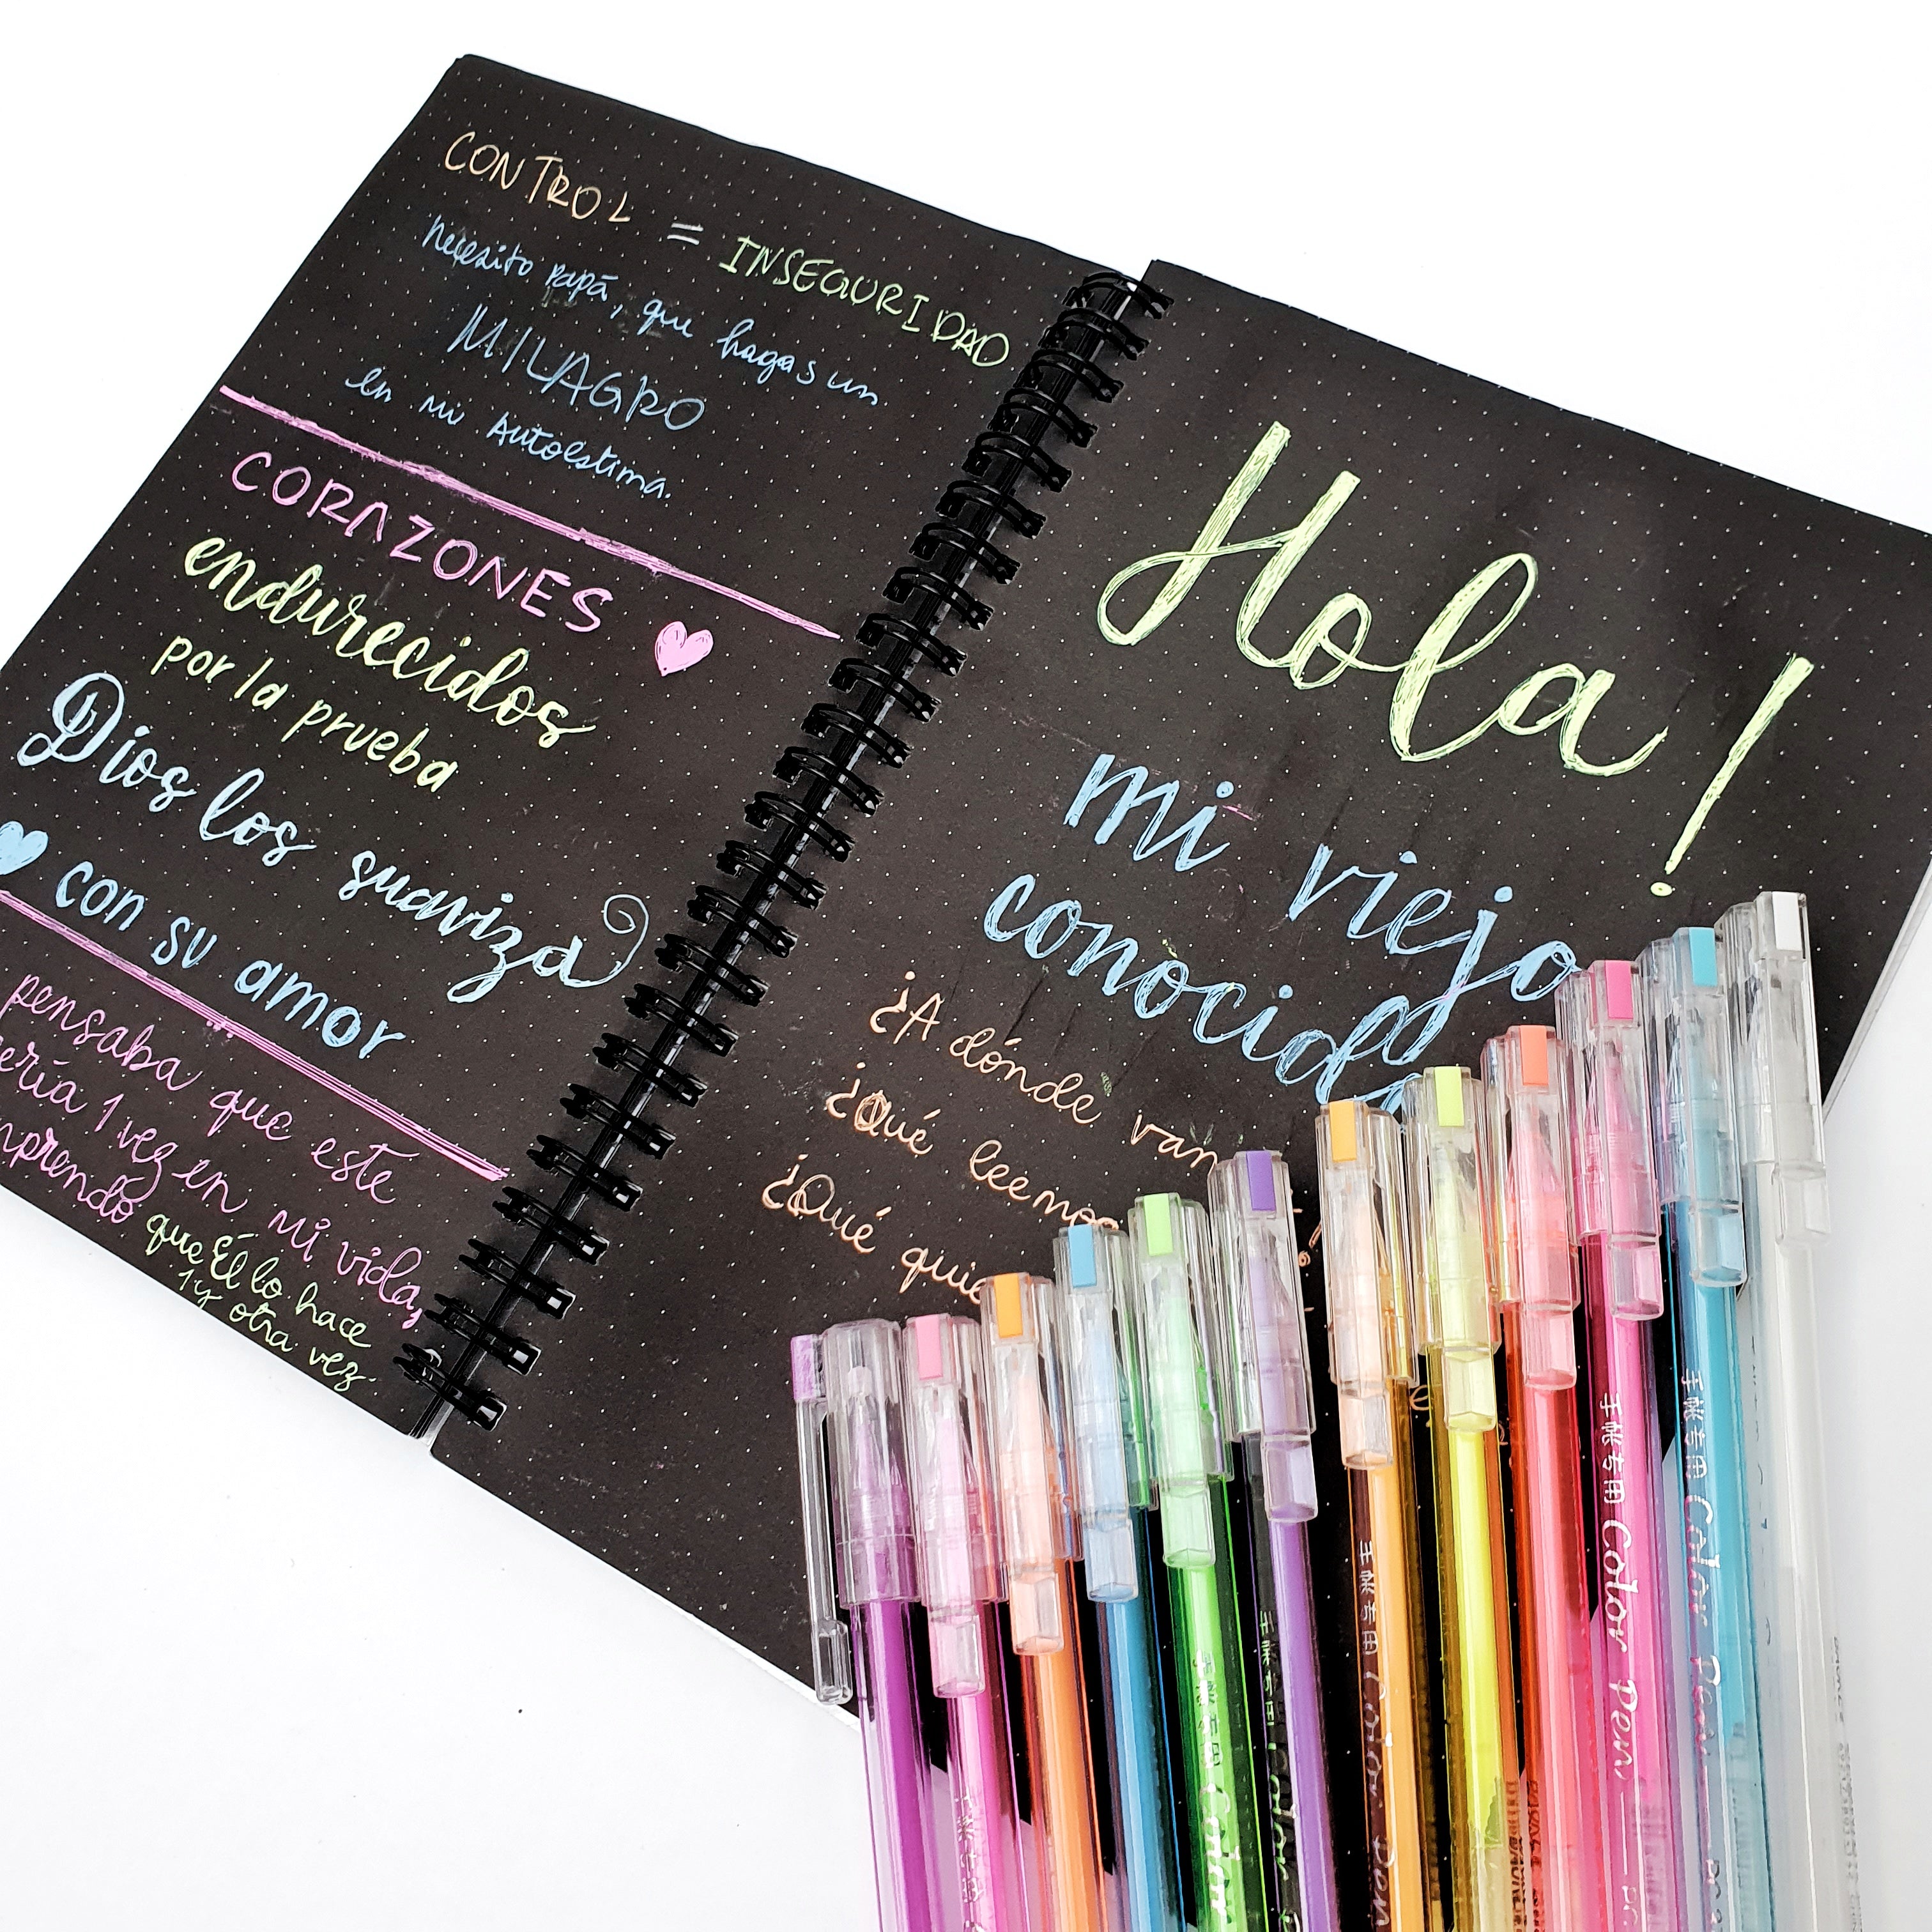 CONTROL = INSEGURIDAD
necesito papá, que hagas un
MILAGRO
en mi Autoestima.
CORAZONES
endurecidos
por la prueba
Dios los suaviza
con su amor
pensaba que este
1 vez en mi vida,
que Él lo hace
1 y otra vez.
Hola!
mi viejo
conocid
¿A dónde van
¿Qué leemos
¿Qué quie
手帐专用 Color
手帐专用 Color Pen
手帐专用 Color Pen
手帐专用 Color Pen